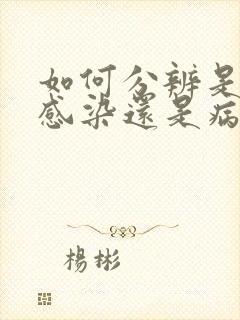 如何分辨是
感染還是病
楊彬